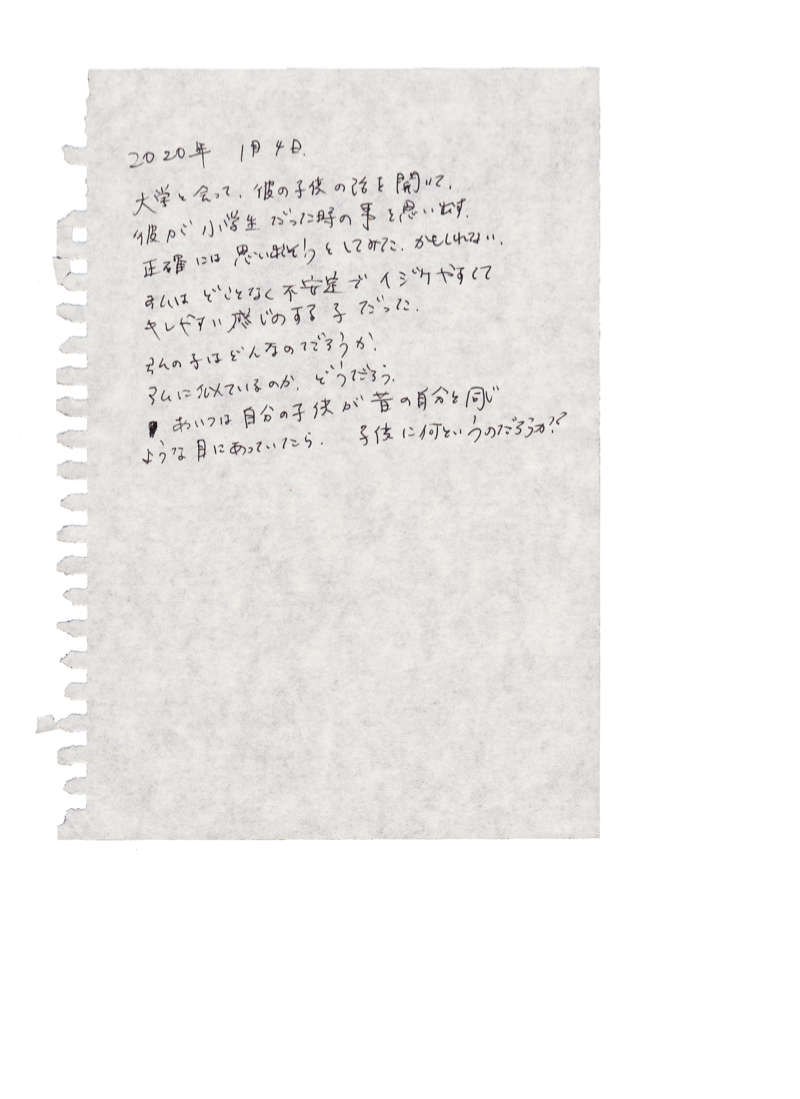 2020年 1月4日.
大学と会って、彼の子供の話を聞いて、
彼が小学生だった時の事を思い出す。
正確には 思い出そうとしてみた、かもしれない。
はどことなく不安定でイジケやすくて
キレやすい感じのする子だった。
の子はどんなのだろうか?
に似ているのか、どうだろう。
あいつは自分の子供が昔の自分と同じ
ような目にあっていたら、 子供に何というのだろうか??